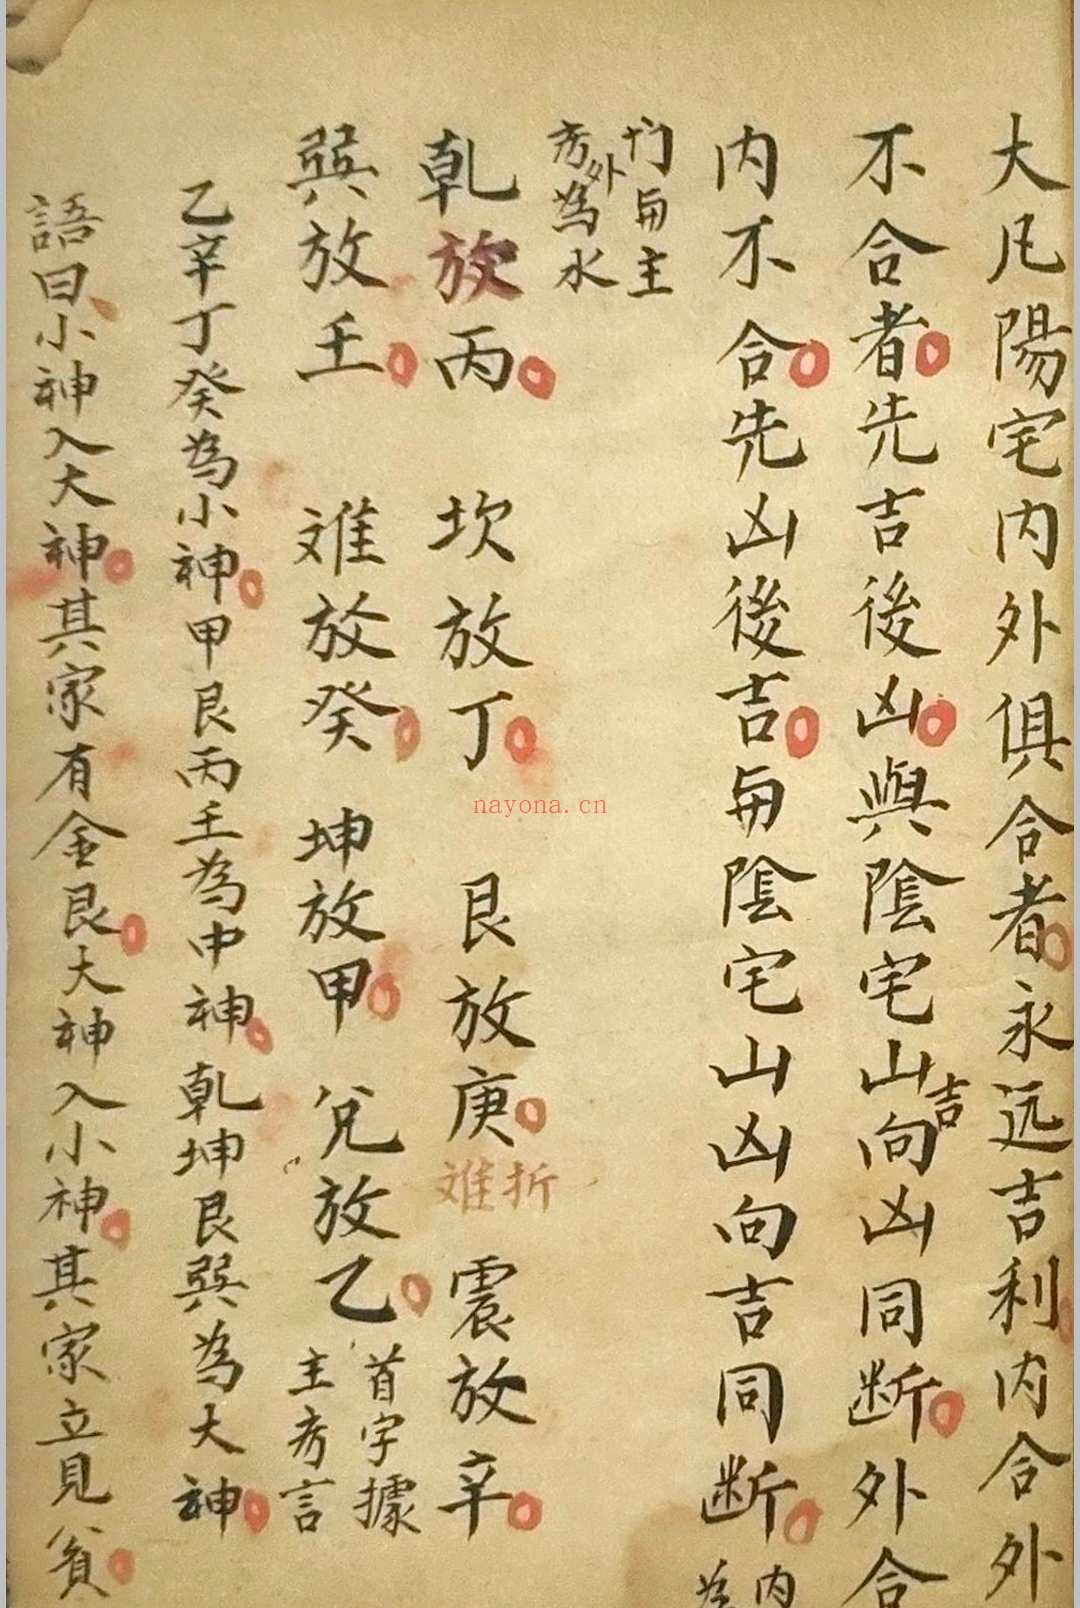 大凡陽宅内外俱合者永远吉利内合外
不合者先吉後凶與陰宅山吉向凶同断外合
内不合先凶後吉与陰宅山凶向吉同断内
为
门与主
外为水
乾放丙 坎放丁 艮放庚 震放辛
巽放壬 难放癸 坤放甲 兌放乙 首字據
主考言
折
难
乙辛丁癸為小神甲艮丙壬為中神乾坤艮巽為大神
語曰小神入大神其家有金艮大神入小神其家立見貧
nayona.cn